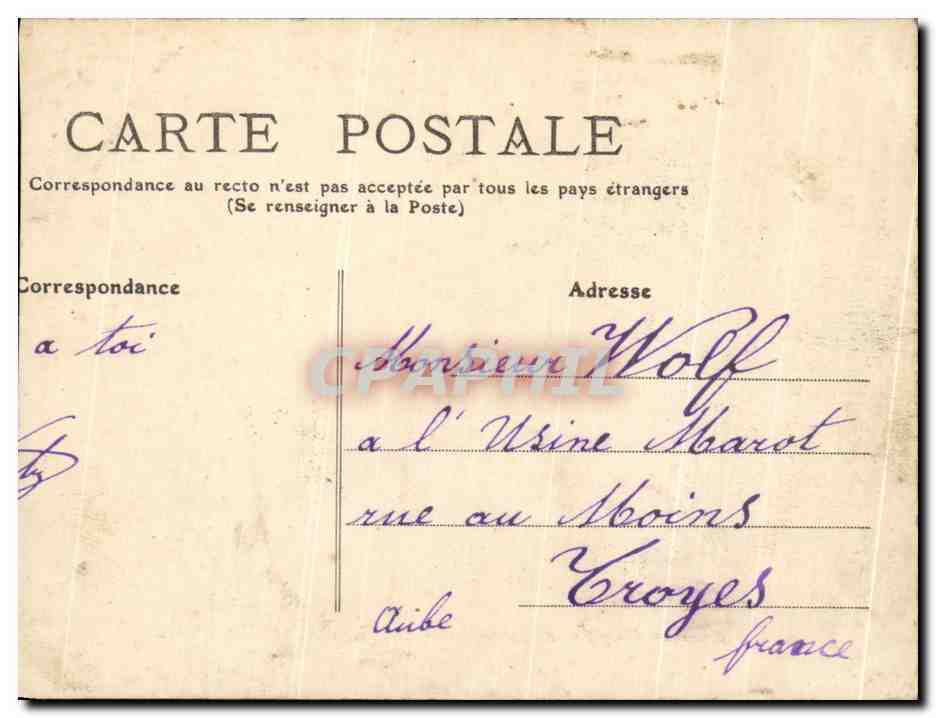 CARTE POSTALE
Correspondance au recto n'est pas acceptée par tous les pays étrangers
(Se renseigner à la Poste)
Correspondance
a toi
Adresse
Monsieur Wolf
a l'Usine Marot
rue au Moins
Troyes
Aube
france
CPAPHIL